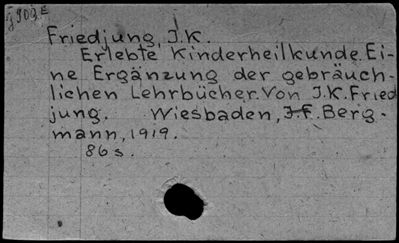 Friedjung, J.K.
Erlebte Kinderheilkunde. Ei-
ne Ergänzung der gebräuch-
lichen Lehrbücher. Von J.K. Fried
jung. Wiesbaden, J.F. Berg-
mann, 1919.
86 s.